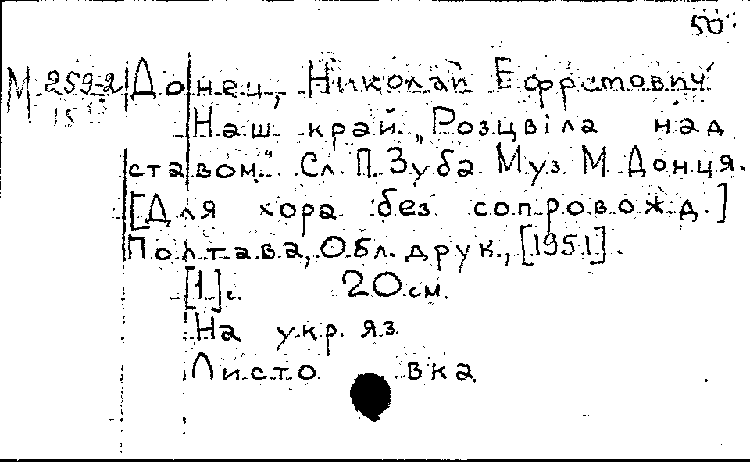 50
М 259-2 Донец, Николай Ефремович
Наш край „Розцвіла над
ставом." Сл. П. Зуба Муз М. Донця.
[Для хора без сопровожд.]
Полтава, Обл. друк., [1951].
[1] с. 20 см.
На укр. яз.
Листовка